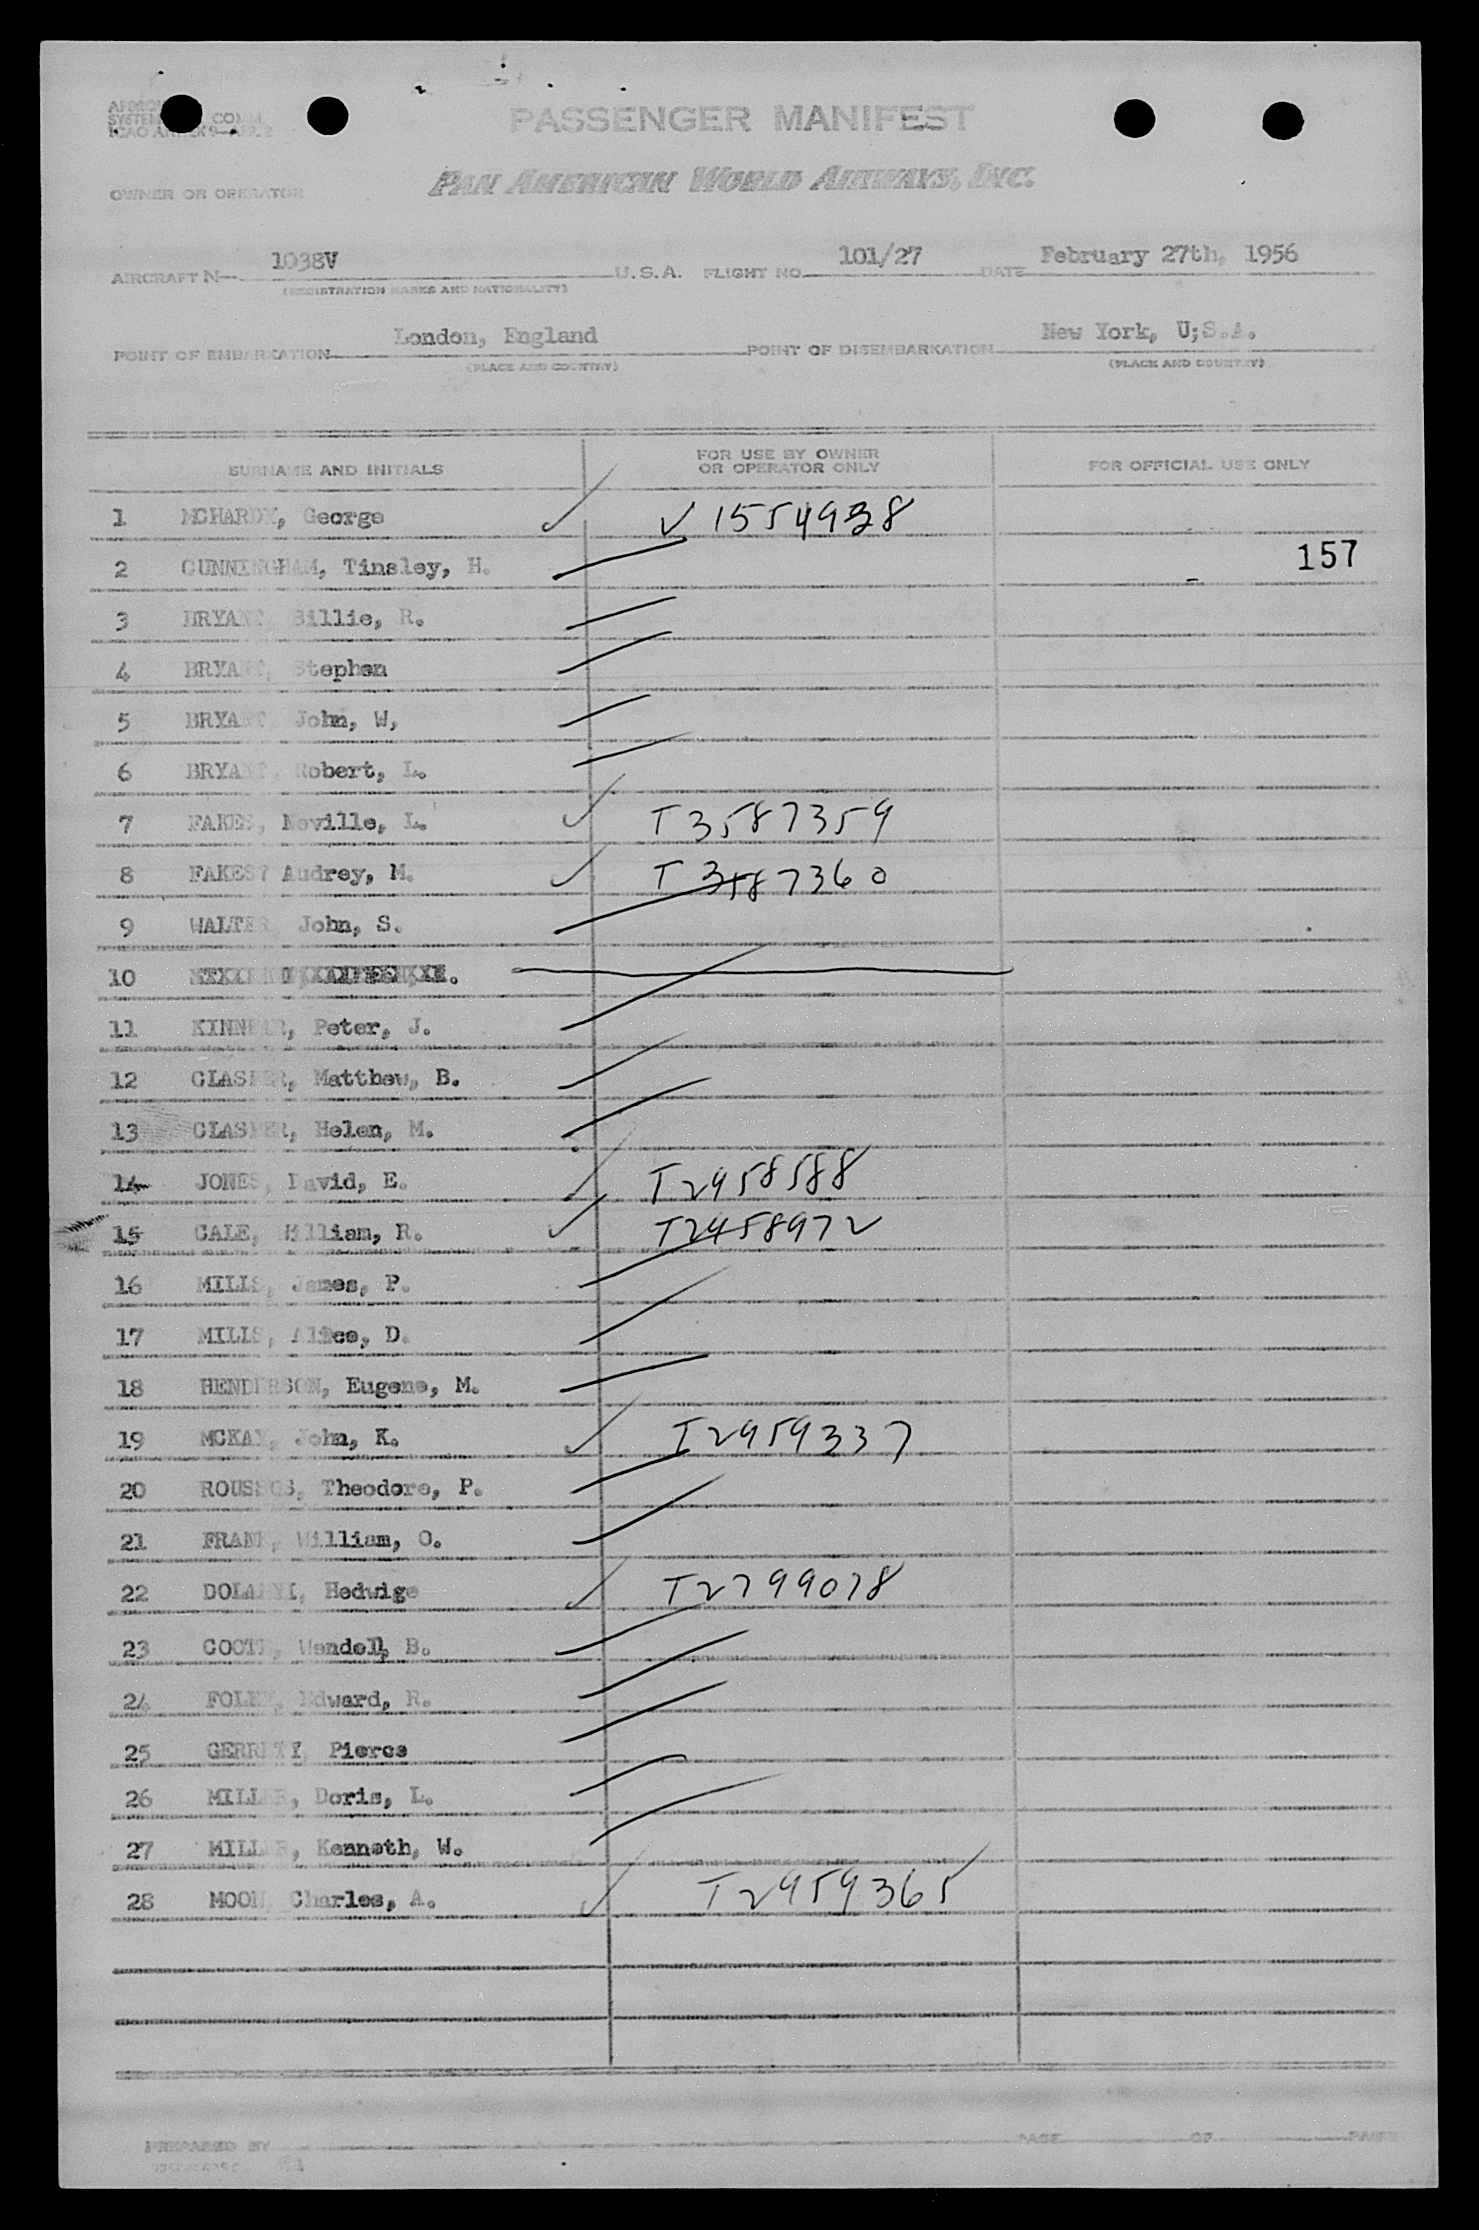 PASSENGER MANIFEST
OWNER OR OPERATOR PAN AMERICAN WORLD AIRWAYS, INC.
AIRCRAFT N- 1038V U.S.A. FLIGHT NO. 101/27 DATE February 27th, 1956
(REGISTRATION MARKS AND NATIONALITY)
POINT OF EMBARKATION London, England POINT OF DISEMBARKATION New York, U;S.A.
(PLACE AND COUNTRY) (PLACE AND COUNTRY)
SURNAME AND INITIALS FOR USE BY OWNER OR OPERATOR ONLY FOR OFFICIAL USE ONLY
1 MCHARDY, George V 1554938
2 CUNNINGHAM, Tinsley, H. 157
3 BRYANT, Billie, R.
4 BRYANT, Stephen
5 BRYANT, John, W,
6 BRYANT, Robert, L.
7 FAKES, Neville, L. T3587359
8 FAKES? Audrey, M. T3587360
9 WALTER, John, S.
10
11 KINNEAR, Peter, J.
12 CLASPER, Matthew, B.
13 CLASPER, Helen, M.
14 JONES, David, E. T2958588
15 CALE, William, R. T2958972
16 MILLS, James, P.
17 MILLS, Alice, D.
18 HENDERSON, Eugene, M.
19 MCKAY, John, K. T2959337
20 ROUSSOS, Theodore, P.
21 FRANK, William, O.
22 Hedwige T2799078
23 Wendell, B.
24 FOLEY, Edward, R.
25 GERRITY, Pierce
26 MILLER, Doris, L.
27 MILLER, Kenneth, W.
28 MOON, Charles, A. T2959365
PREPARED BY PAGE OF PAGES